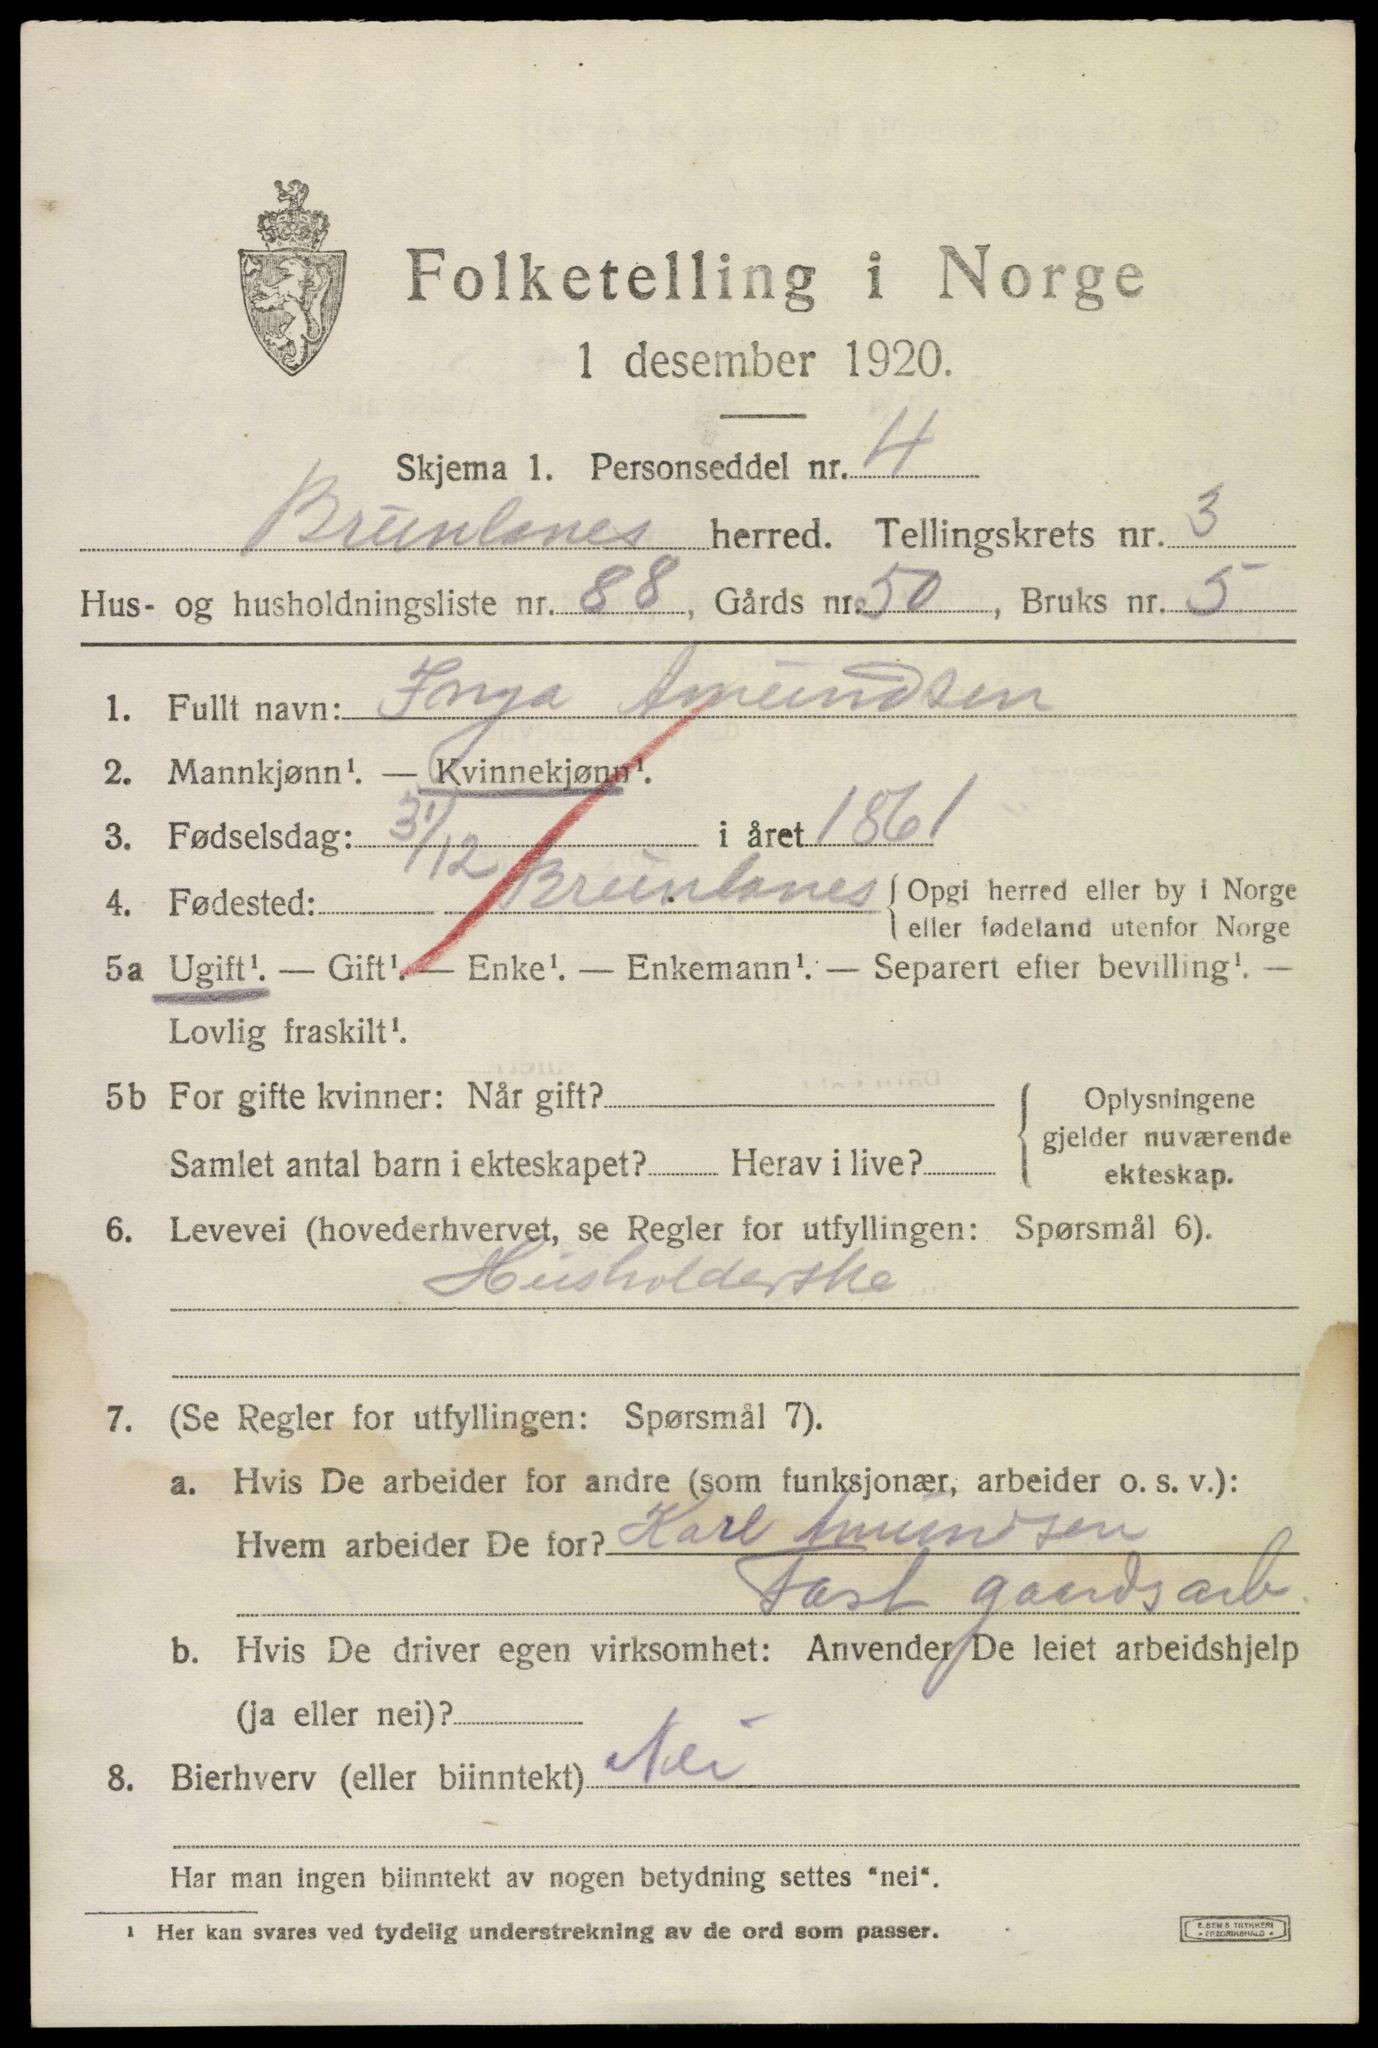 Folketelling i Norge
1 desember 1920.
Skjema 1. Personseddel nr. 4
Brunlanes herred. Tellingskrets nr. 3
Hus- og husholdningsliste nr. 88, Gårds nr. 50, Bruks nr. 5
1. Fullt navn: Inga Amundsen
2. Mannkjønn¹. — Kvinnekjønn¹.
3. Fødselsdag: 31/12 i året 1861
4. Fødested: Brunlanes { Opgi herred eller by i Norge
eller fødeland utenfor Norge
5a Ugift¹. — Gift¹. — Enke¹. — Enkemann¹. — Separert efter bevilling¹. —
Lovlig fraskilt¹.
5b For gifte kvinner: Når gift?
Samlet antal barn i ekteskapet? Herav i live?
{ Oplysningene
gjelder nuværende
ekteskap.
6. Levevei (hovederhvervet, se Regler for utfyllingen: Spørsmål 6).
Husholderske
7. (Se Regler for utfyllingen: Spørsmål 7).
a. Hvis De arbeider for andre (som funksjonær, arbeider o. s. v.):
Hvem arbeider De for? Karl Amundsen
Fast gaardsarb.
b. Hvis De driver egen virksomhet: Anvender De leiet arbeidshjelp
(ja eller nei)?
8. Bierhverv (eller biinntekt) Nei
Har man ingen biinntekt av nogen betydning settes "nei".
¹ Her kan svares ved tydelig understrekning av de ord som passer.
E. SEMS TRYKKERI
FREDRIKSHALD